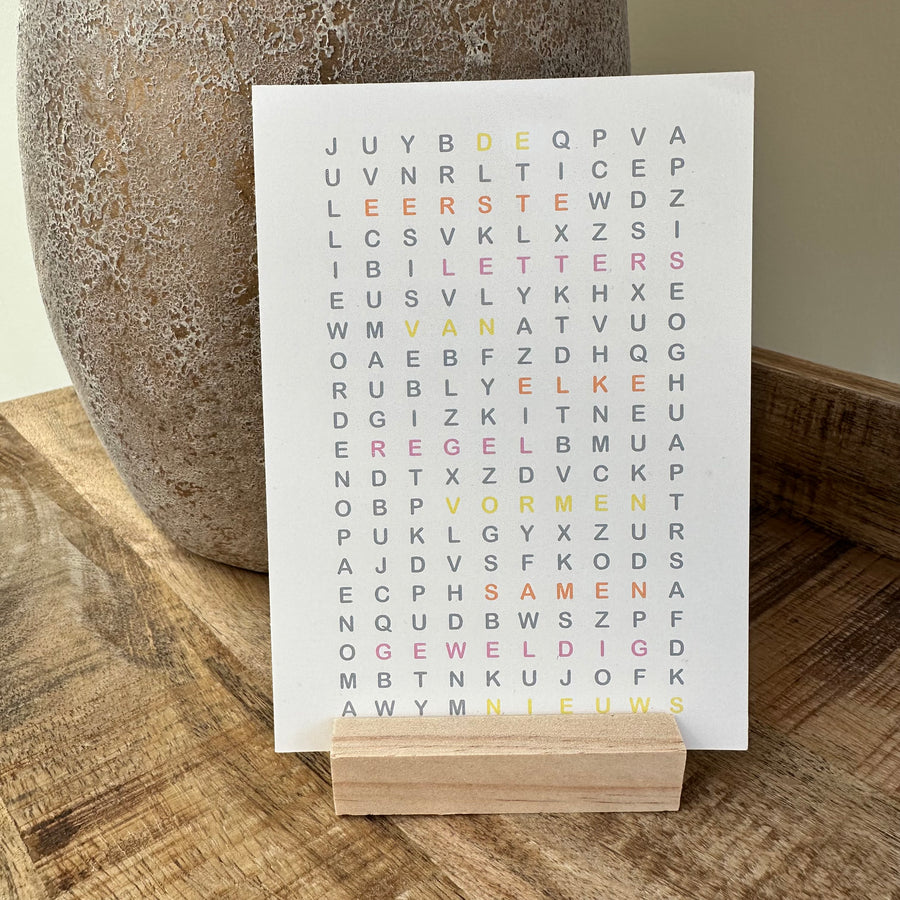 J U Y B D E Q P V A
U V N R L T I C E P
L E E R S T E W D Z
L C S V K L X Z S I
I B I L E T T E R S
E U S V L Y K H X E
W M V A N A T V U O
O A E B F Z D H Q G
R U B L Y E L K E H
D G I Z K I T N E U
E R E G E L B M U A
N D T X Z D V C K P
O B P V O R M E N T
P U K L G Y X Z U R
A J D V S F K O D S
E C P H S A M E N A
N Q U D B W S Z P F
O G E W E L D I G D
M B T N K U J O F K
A W Y M N I E U W S